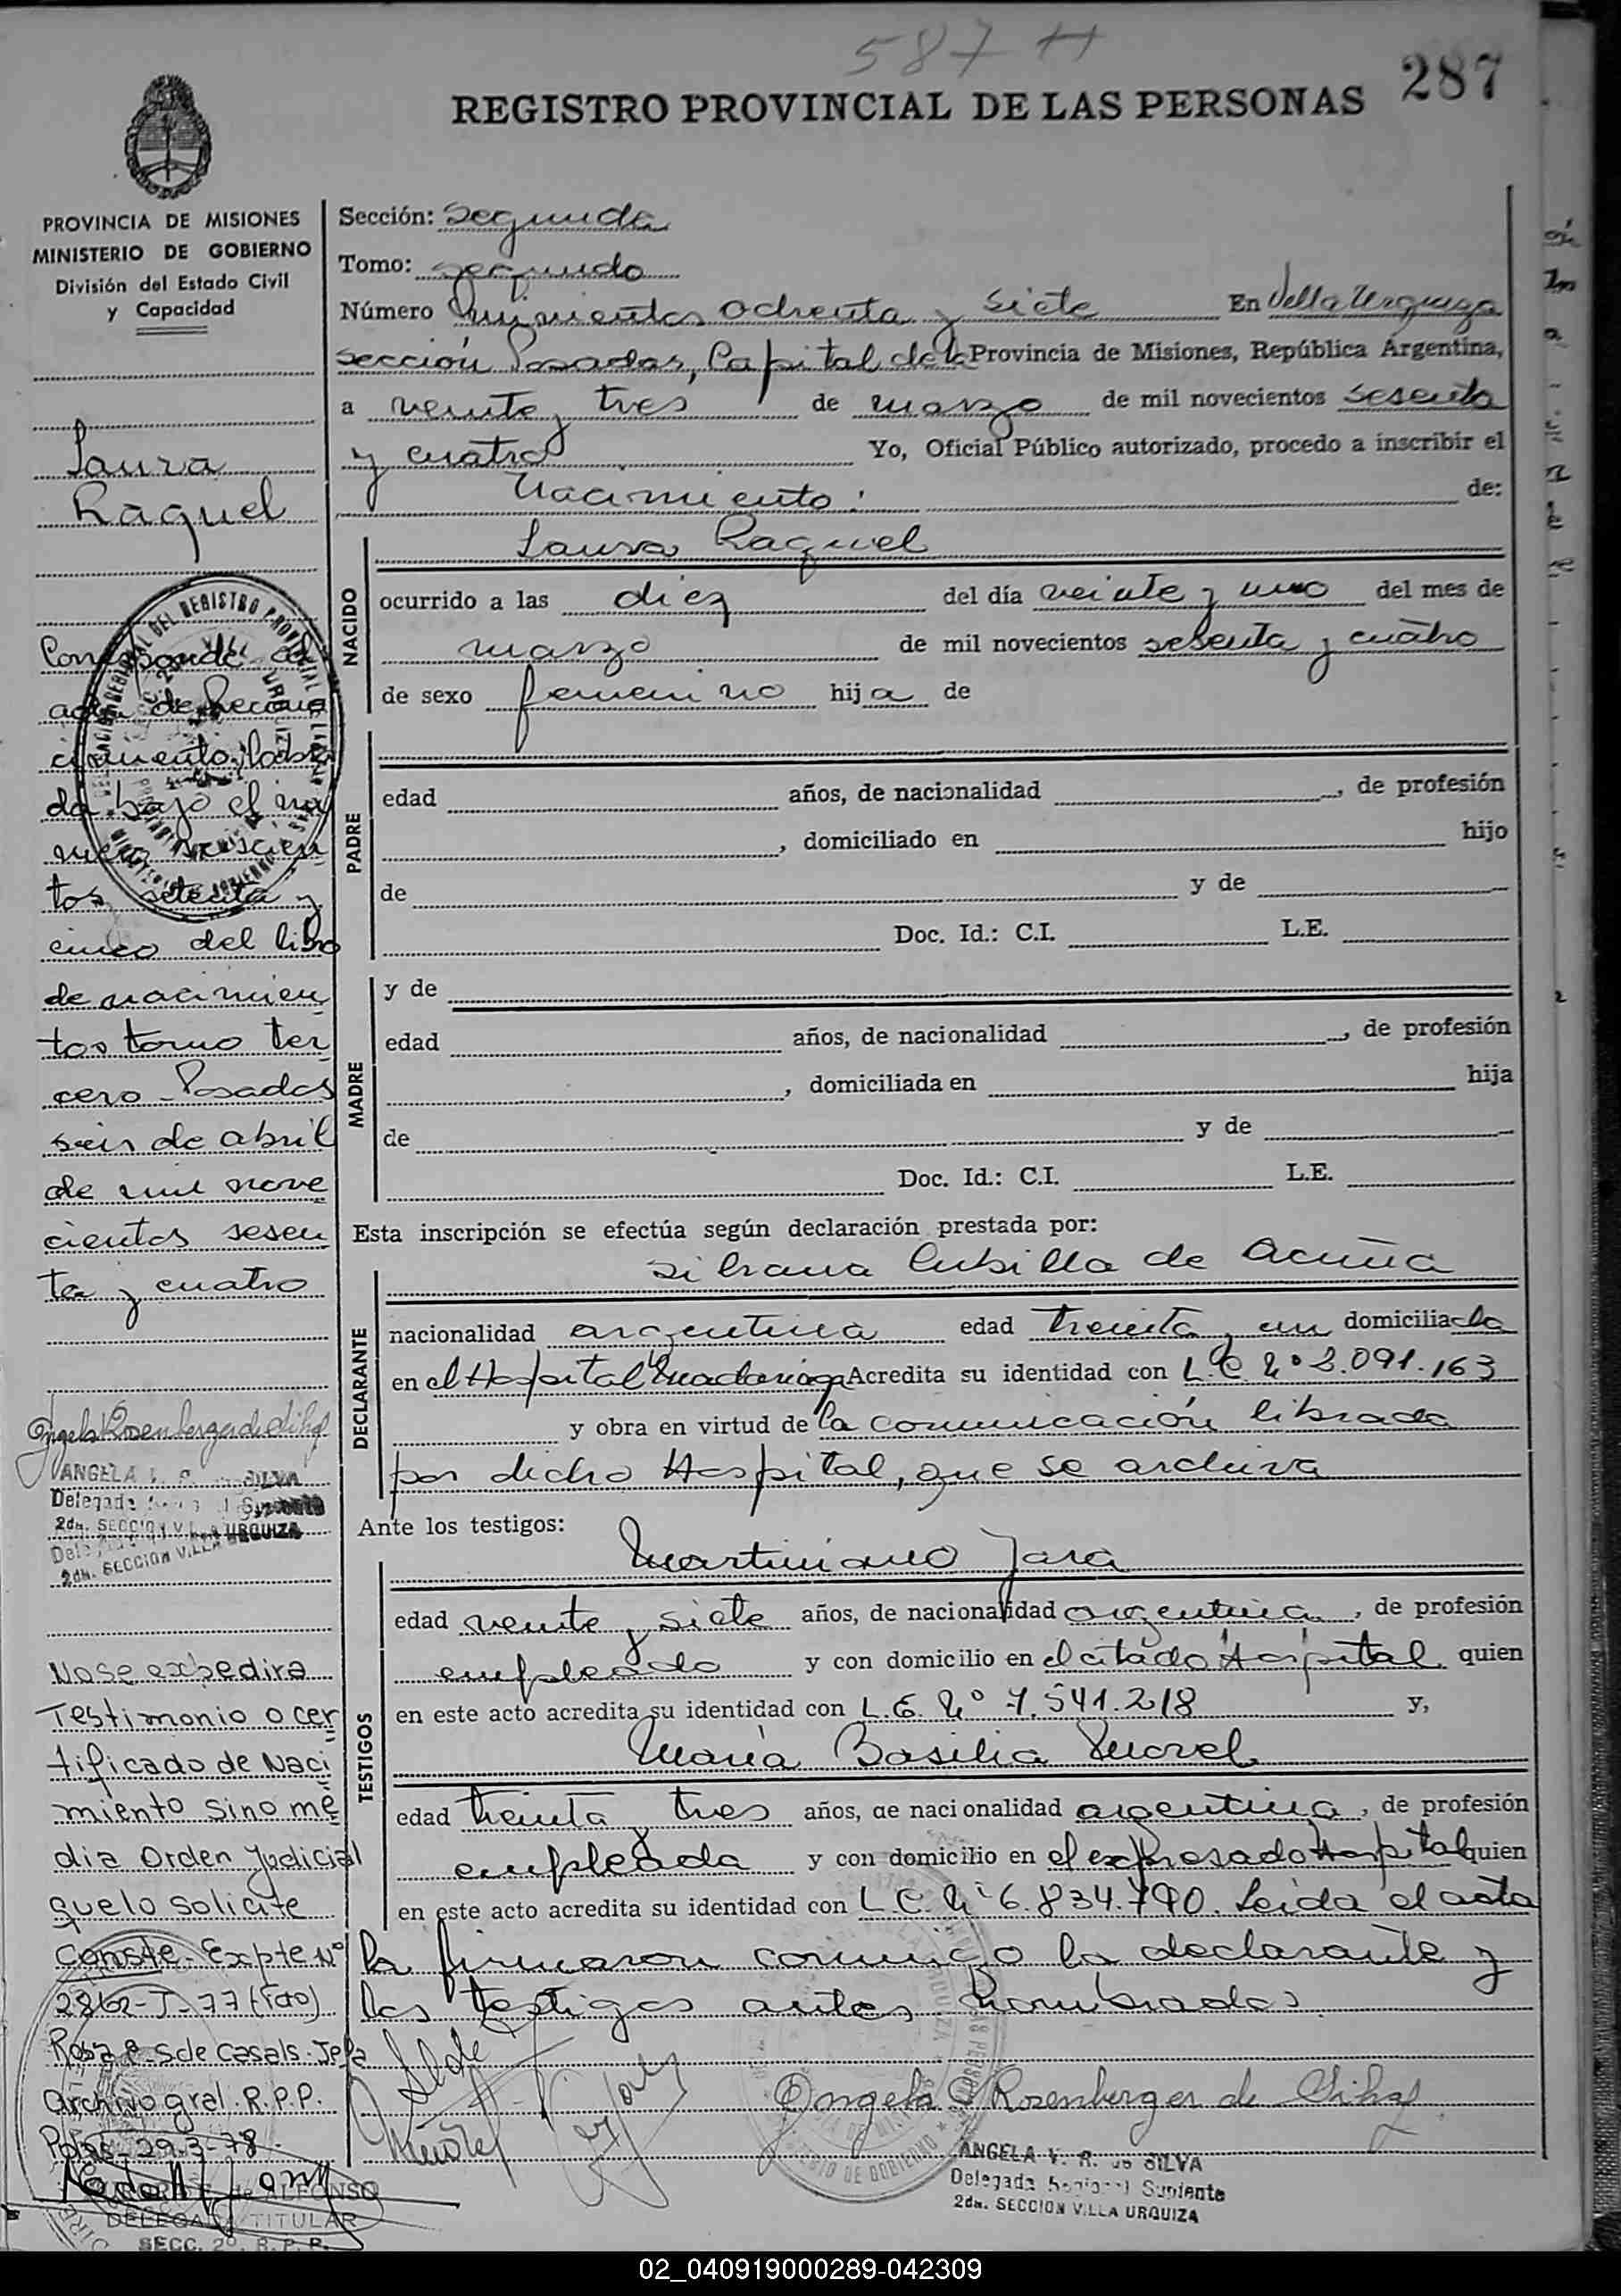 587 H
REGISTRO PROVINCIAL DE LAS PERSONAS 287
PROVINCIA DE MISIONES
MINISTERIO DE GOBIERNO
División del Estado Civil
y Capacidad
Laura
Raquel
Corresponde al
acta de Recono
cimiento labra
da bajo el nú
mero seiscien
tos setenta y
cinco del libro
de nacimien
tos tomo ter
cero - Posadas
seis de abril
de mil nove
cientos sesen
ta y cuatro
ANGELA V. R. de SILVA
2da. SECCION VILLA URQUIZA
2da. SECCION VILLA URQUIZA
No se expedira
Testimonio o cer
tificado de Naci
miento sino me
dia Orden Judicial
que lo solicite
Conste - Expte Nº
2862-J-77 (Fdo)
Rosa E. S de Casals. Jefa
Archivo gral. R.P.P.
Pdas. 29-3-78.
DELEGADA TITULAR
SECC. 2º. R. P. P.
Sección: Segunda
Tomo: segundo
Número Quinientos ochenta y siete En Villa Urquiza
sección Posadas, Capital de la Provincia de Misiones, República Argentina,
a veinte y tres de marzo de mil novecientos sesenta
y cuatro Yo, Oficial Público autorizado, procedo a inscribir el
Nacimiento: de:
NACIDO
Laura Raquel
ocurrido a las diez del día veinte y uno del mes de
marzo de mil novecientos sesenta y cuatro
de sexo femenino hija de
PADRE
edad años, de nacionalidad , de profesión
, domiciliado en hijo
de y de
Doc. Id.: C.I. L.E.
MADRE
y de
edad años, de nacionalidad , de profesión
, domiciliada en hija
de y de
Doc. Id.: C.I. L.E.
Esta inscripción se efectúa según declaración prestada por:
DECLARANTE
Silvana Cubilla de Acuña
nacionalidad argentina edad treinta y un domiciliada
en el Hospital Madariaga Acredita su identidad con L.C. Nº 3.091.163
y obra en virtud de la comunicación librada
por dicho Hospital, que se archiva
Ante los testigos:
TESTIGOS
Martiniano Jara
edad veinte y siete años, de nacionalidad argentina, de profesión
empleado y con domicilio en el citado Hospital quien
en este acto acredita su identidad con L.E. Nº 7.541.218 y,
María Basilia Morel
edad treinta y tres años, de nacionalidad argentina, de profesión
empleada y con domicilio en el expresado Hospital quien
en este acto acredita su identidad con L.C. Nº 6.834.790. Leida el acta
la firmaron conmigo la declarante y
los testigos antes nombrados
Angela Rosenberger de Silva
ANGELA V. R. de SILVA
Delegada Regional Suplente
2da. SECCION VILLA URQUIZA
02_040919000289-042309